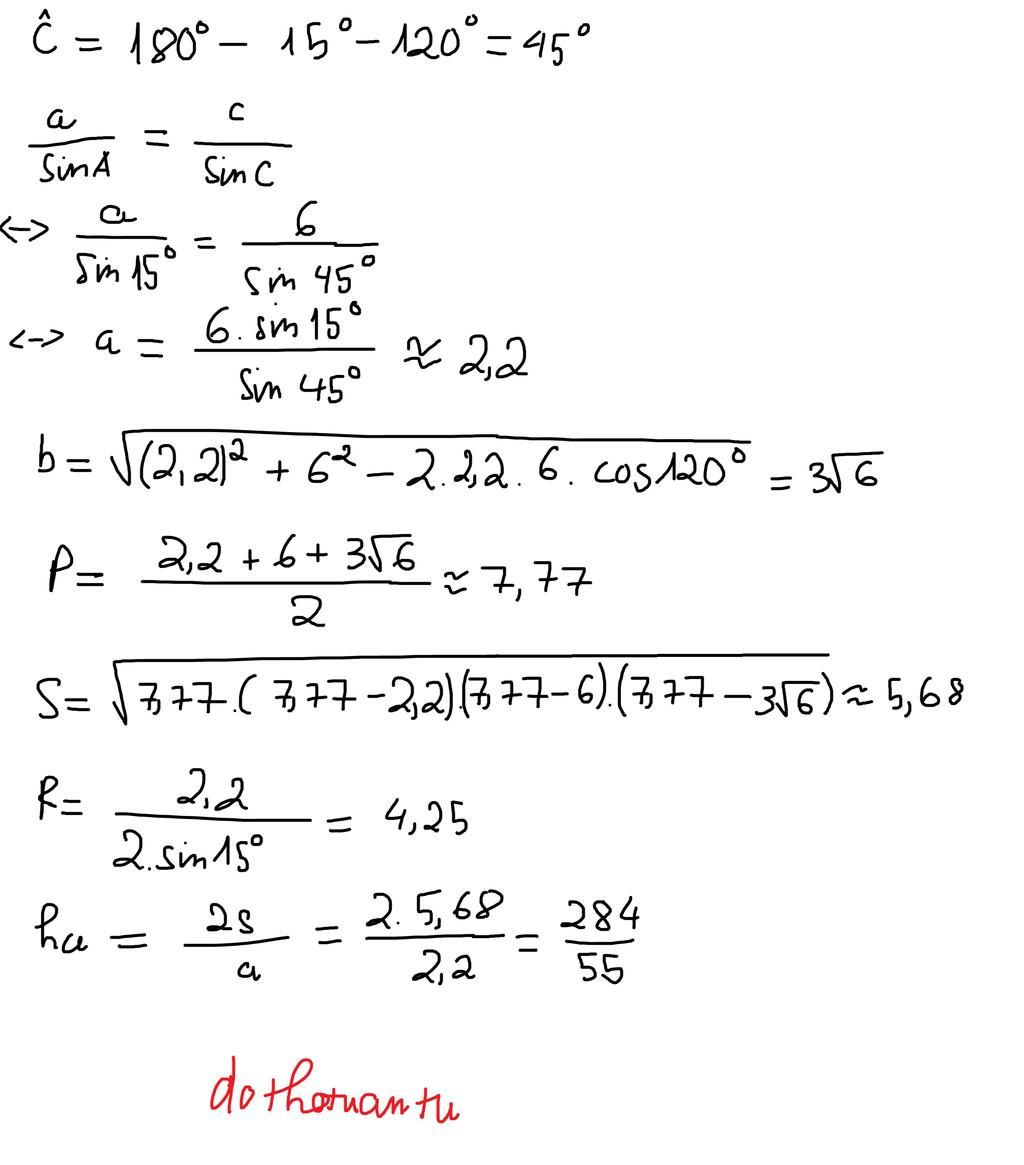 Ĉ = 180° - 15° - 120° = 45°
a/sinA = c/sinC
<-> a/sin 15° = 6/sin 45°
<-> a = 6. sin 15°/sin 45° ≈ 2,2
b = √((2,2)² + 6² - 2.2,2. 6. cos120°) = 3√6
P = (2,2 + 6 + 3√6)/2 ≈ 7,77
S = √(7,77.(7,77-2,2).(7,77-6).(7,77-3√6)) ≈ 5,68
R = 2,2/2.sin15° = 4,25
ha = 2S/a = 2.5,68/2,2 = 284/55